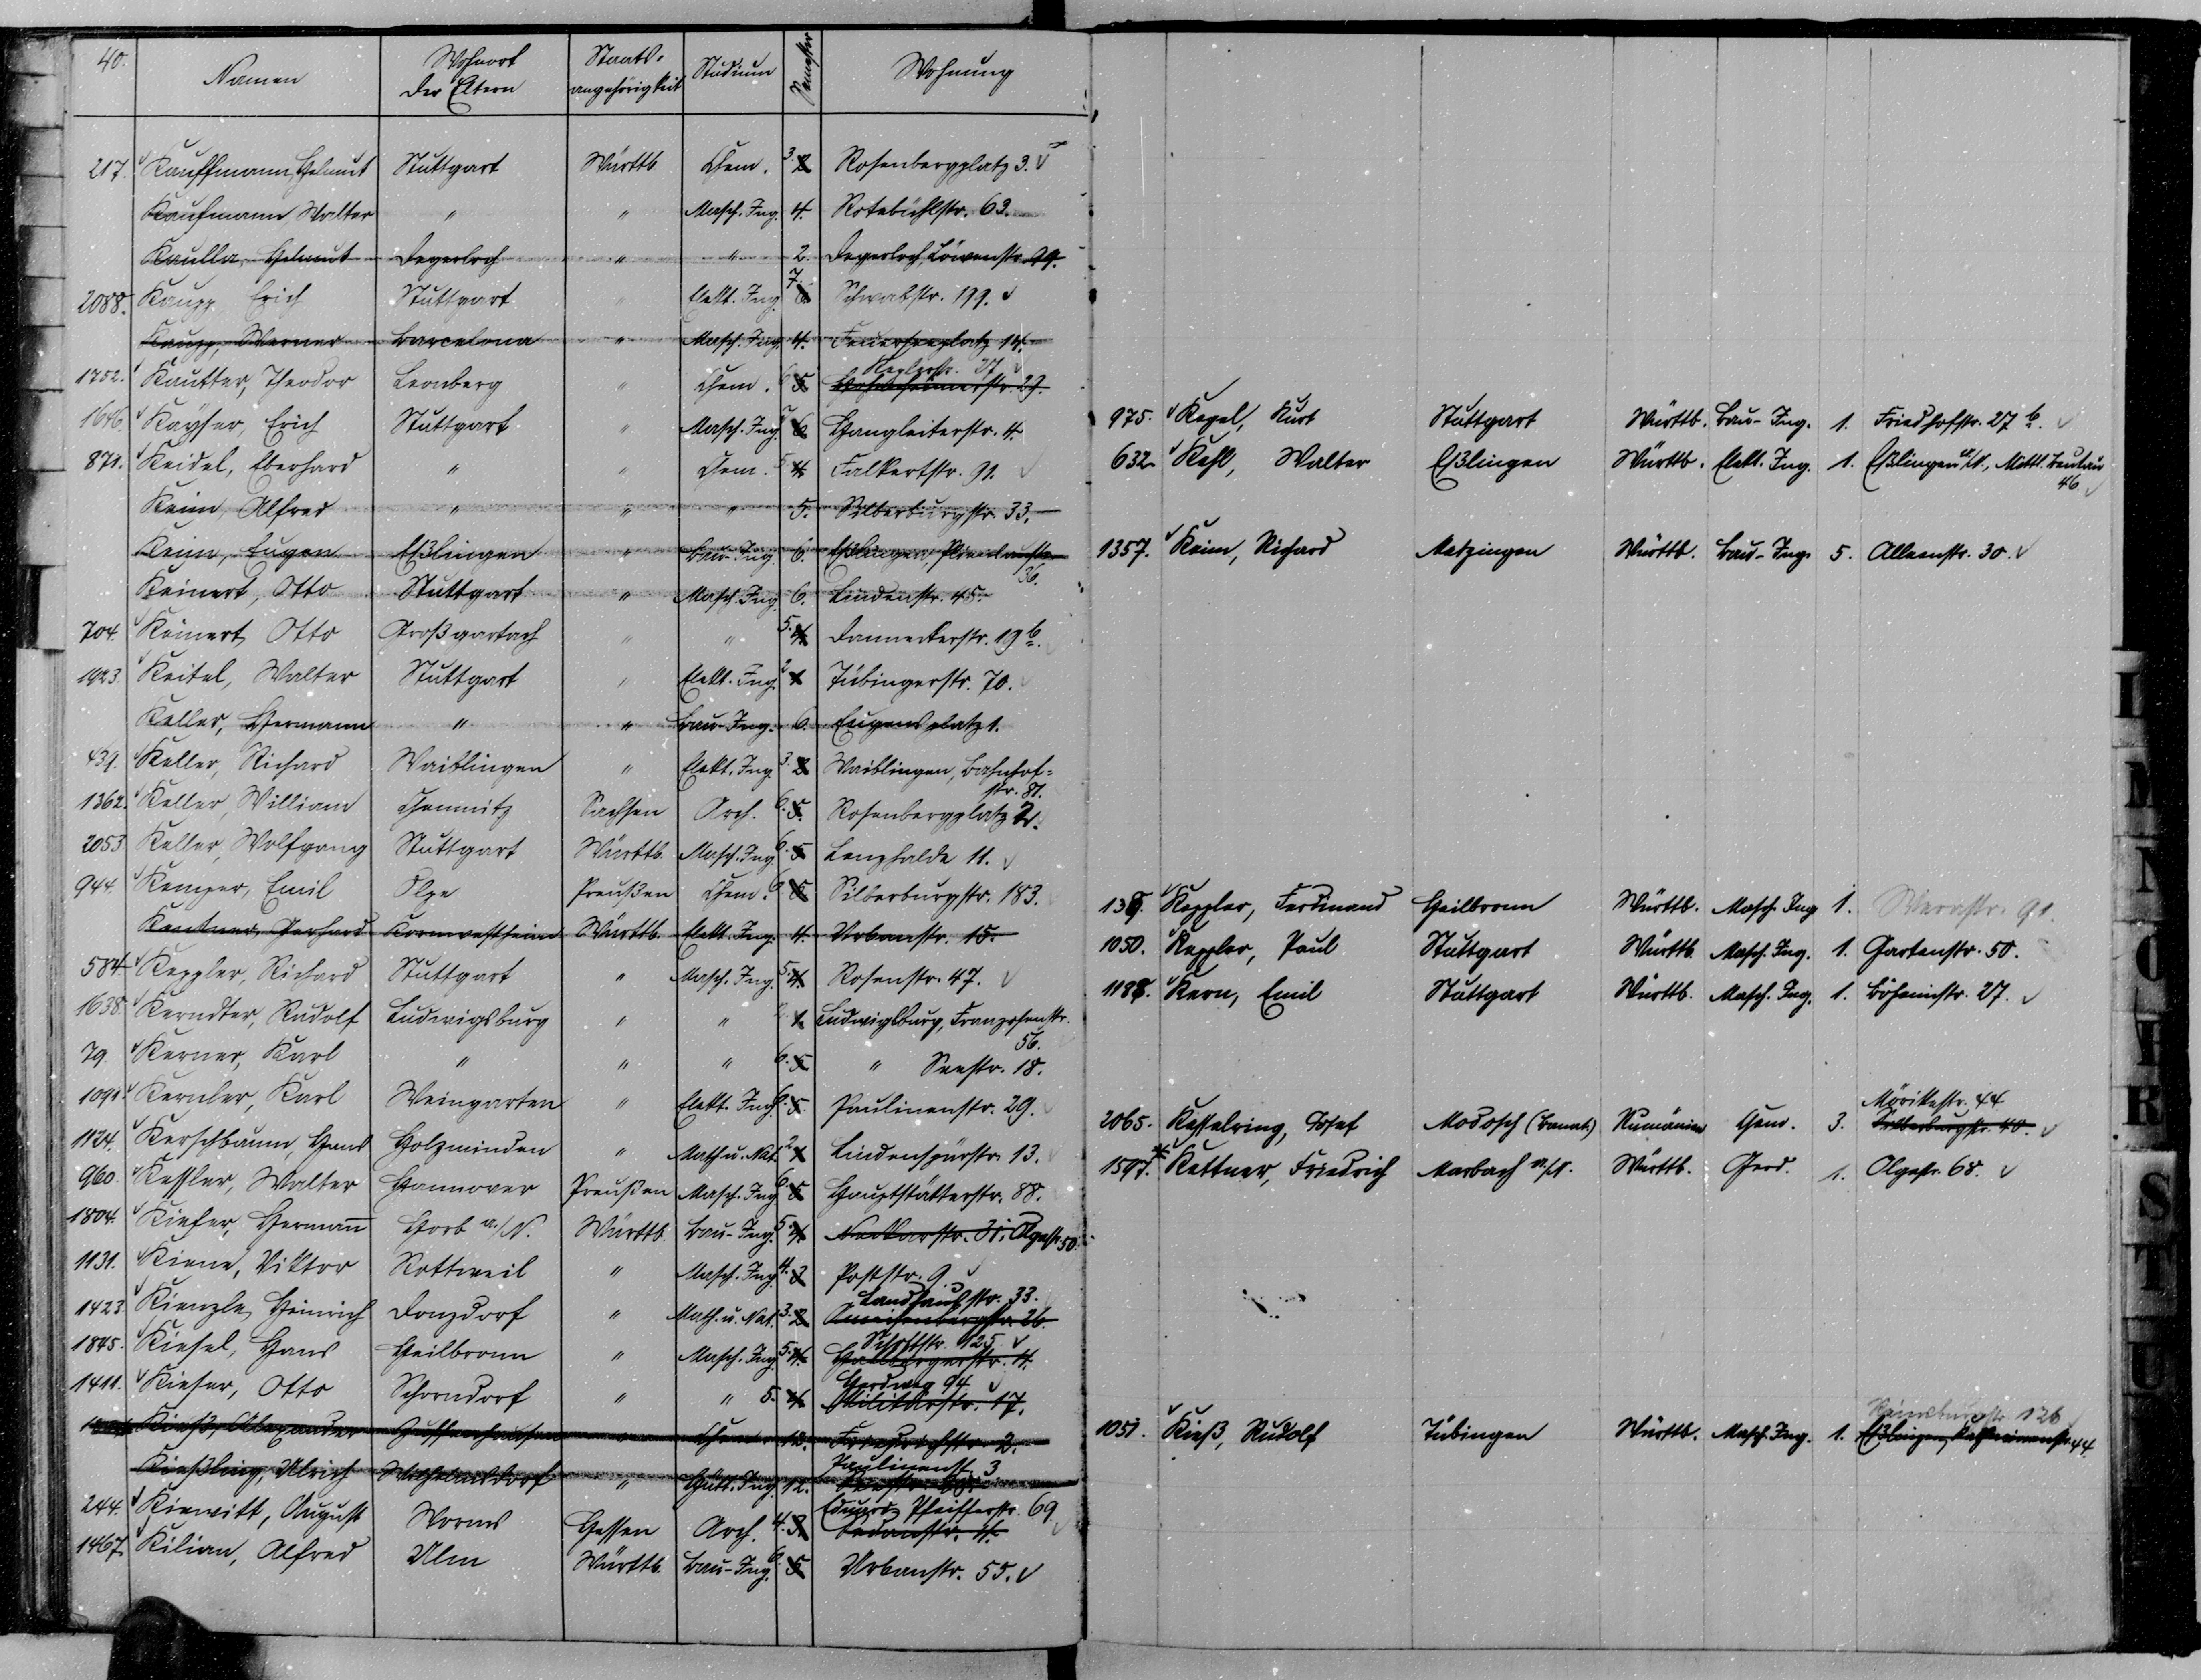 40.
Namen Wohnort der Eltern Staats-angehörigkeit Studium Semester Wohnung
217. Kauffmann, Helmut Stuttgart Württb. Chem. 3. 2 Rosenbergplatz 3.
Kaufmann, Walter " " Masch. Ing. 4. Rotebühlstr. 63.
Kaulla, Helmut Degerloch " " 2. Degerloch, Löwenstr. 99.
2088. Kaupp Erich Stuttgart " Elekt. Ing. 7. 6. Schwabstr. 199.
Kaupp, Werner Barcelona " Masch. Ing. 4. Feuerseeplatz 14.
Keplerstr. 27
1752. Kautter, Theodor Leonberg " Chem. 6. 5 29.
1646. Kayser, Erich Stuttgart " Masch. Ing. 7. 6. Hangleiterstr. 4.
871. Keidel, Eberhard " " Chem. 5. 4. Falkertstr. 91.
Keim, Alfred " " " 5. Silberburgstr. 33.
Keim, Eugen Eßlingen " Bau-Ing. 6. Eßlingen, Plienhaustr.
36.
Keinert, Otto Stuttgart " Masch. Ing. 6. Lindenstr. 45.
704. Keinert, Otto Großgartach " " 5. 4. Danneckerstr. 19 b.
1923. Keitel, Walter Stuttgart " Elekt. Ing. 2. 1 Tübingerstr. 70.
Keller, Hermann " " Bau-Ing. 6. Eugensplatz 1.
439. Keller, Richard Waiblingen " Elekt. Ing. 3. 2. Waiblingen, Bahnhof-
str. 81.
1362. Keller, William Chemnitz Sachsen Arch. 6. 5. Rosenbergplatz 2.
2053 Keller, Wolfgang Stuttgart Württb. Masch. Ing. 6. 5 Lenzhalde 11.
944. Kemper, Emil Olpe Preußen Chem. 6. 5. Silberburgstr. 183.
Kentner, Gerhard Kornwestheim Württb. Elekt. Ing. 4. Urbanstr. 15.
584. Keppler, Richard Stuttgart " Masch. Ing. 5. 4. Rosenstr. 47.
1638. Kerndter, Rudolf Ludwigsburg " " 2. 1. Ludwigsburg, Franzosenstr.
56.
79. Kerner, Karl " " " 6. 5 " Seestr. 18.
1091. Kernler, Karl Weingarten " Elekt. Ing. 6. 5. Paulinenstr. 29.
1124. Kerschbaum, Hans Holzminden " Math. u. Nat. 2. 1 Lindenspürstr. 13.
960. Kessler, Walter Hannover Preußen Masch. Ing. 6. 5. Hauptstätterstr. 88.
1804. Kiefer, Hermann Horb a./N. Württb. Bau-Ing. 5. 4. Neckarstr. 31. Olgastr. 50.
1131. Kiene, Viktor Rottweil " Masch. Ing. 4. 3 Poststr. 9.
Landhausstr. 33.
1423. Kienzle, Heinrich Donzdorf " Math. u. Nat. 3. 2. Ameisenbergstr. 26.
Schoßstr. 125
1845. Kiesel, Hans Heilbronn " Masch. Ing. 5. 4. 4.
Herdweg 94
1411. Kieser, Otto Schorndorf " " 5. 4. Militärstr. 17.
Kieß, Alexander Zuffenhausen " Chem. 12. Friedrichstr. 2.
Paulinenst. 3
Kießling, Ulrich Wilhelmsdorf " Hütt. Ing. 12.
Eduard Pfeifferstr. 69
244. Kiewitt, August Worms Hessen Arch. 4. 3. Sedanstr. 4.
1467. Kilian, Alfred Ulm Württb. Bau-Ing. 6. 5 Urbanstr. 55.
975. Kegel, Kurt Stuttgart Württb. Bau-Ing. 1. Friedhofstr. 27 b.
632. Kehl, Walter Eßlingen Württb. Elekt. Ing. 1. Eßlingen a./N., Mittl. Beutau
46
1357. Keim, Richard Metzingen Württb. Bau-Ing. 5. Alleenstr. 30.
139. Keppler, Ferdinand Heilbronn Württb. Masch. Ing. 1. Werastr. 91.
1050. Keppler, Paul Stuttgart Württb. Masch. Ing. 1. Gartenstr. 50.
1188. Kern, Emil Stuttgart Württb. Masch. Ing. 1. Böheimstr. 27.
Mörikestr. 44
2065. Kesselring, Josef Modosch (Banat) Rumänien Chem. 3. Silberburgstr. 40.
1597. Kettner, Friedrich Marbach a./N. Württb. Geod. 1. Olgastr. 68.
Reinsburgstr. 126
1051. Kieß, Rudolf Tübingen Württb. Masch. Ing. 1. Eßlingen, Katharinenstr. 44
L
M
N
O
P
R
S
T
U